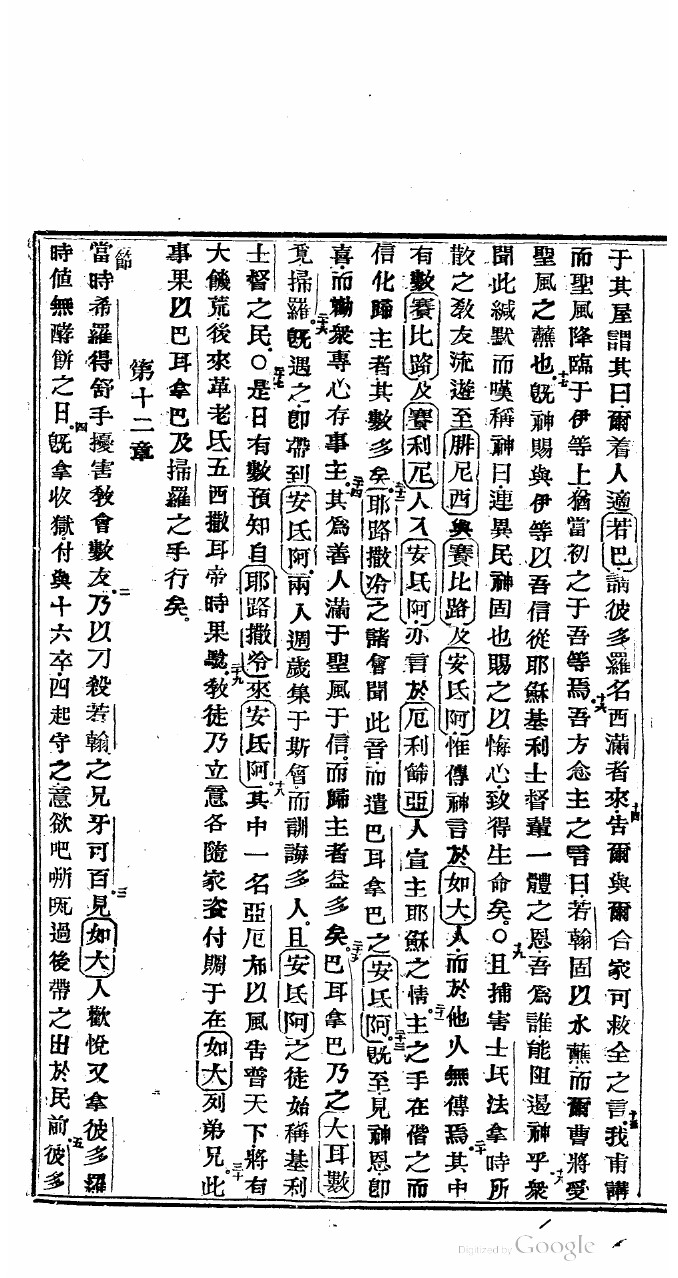 于其屋謂其曰爾着人適若巴請彼多羅名西滿者來十四告爾與爾合家可救全之言十五我甫講
而聖風降臨于伊等上猶當初之于吾等焉十六吾方念主之言曰若翰固以水蘸而爾曹將受
聖風之蘸也十七旣神賜與伊等以吾信從耶穌基利士督輩一體之恩吾爲誰能阻遏神乎十八衆
聞此緘默而嘆稱神曰連異民神固也賜之以悔心致得生命矣〇十九且捕害士氐法拿時所
散之敎友流遊至腓尼西與賽比路及安氐阿惟傳神言於如大人而於他人無傳焉二十其中
有數賽比路及賽利厄人入安氐阿亦言於厄利篩亞人宣主耶穌之情二十一主之手在偕之而
信化歸主者其數多矣二十二耶路撒冷之諸會聞此音而遣巴耳拿巴之安氐阿二十三旣至見神恩卽
喜而勸衆專心存事主二十四其爲善人滿于聖風于信而歸主者益多矣二十五巴耳拿巴乃之大耳數
覓掃羅二十六旣遇之卽帶到安氐阿兩人週歲集于斯會而訓誨多人且安氐阿之徒始稱基利
士督之民〇二十七是日有數預知自耶路撒冷來安氐阿二十八其中一名亞厄布以風告普天下將有
大饑荒後來革老氐五西撒耳帝時果驗二十九敎徒乃立意各隨家資付賜于在如大列弟兄三十此
事果以巴耳拿巴及掃羅之手行矣
第十二章
節
當時希羅得舒手擾害敎會數友二乃以刀殺若翰之兄牙可百三見如大人歡悅又拿彼多羅
時値無酵餅之日四旣拿收獄付與十六卒四起守之意欲吧咓旣過後帶之出於民前五彼多
Digitized by Google